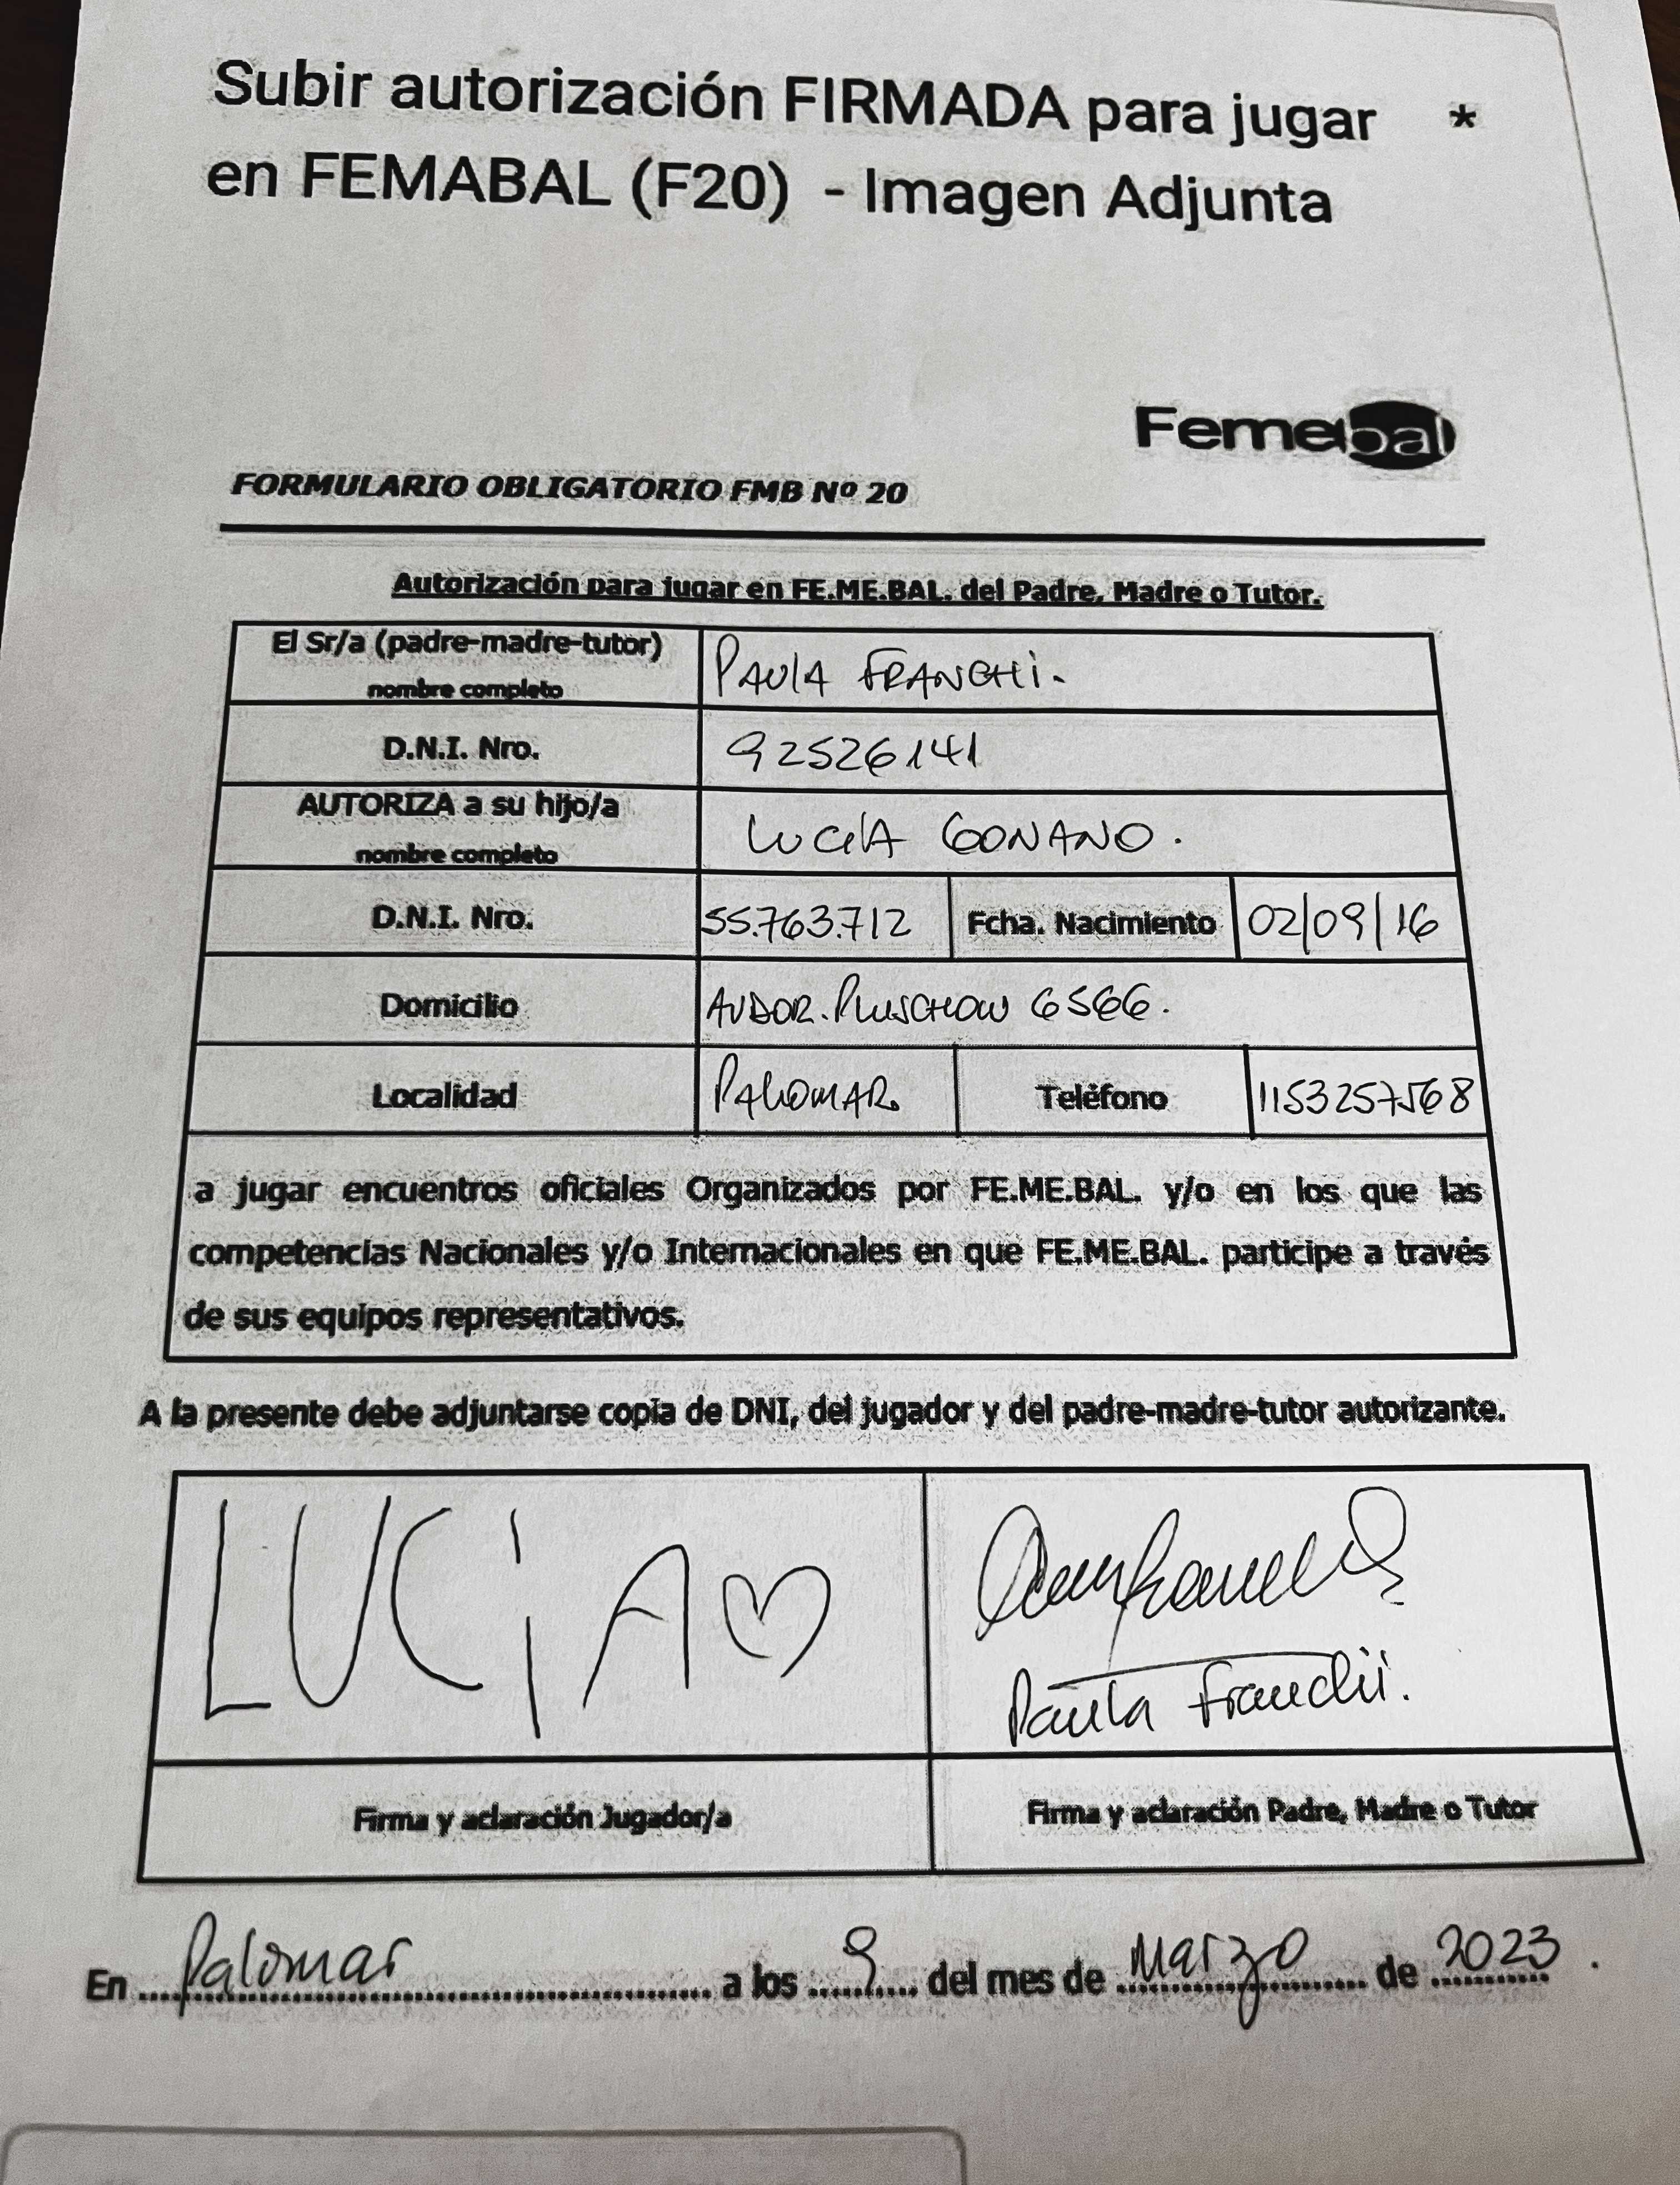 Subir autorización FIRMADA para jugar *
en FEMABAL (F20) - Imagen Adjunta
Femebal
FORMULARIO OBLIGATORIO FMB Nº 20
Autorización para jugar en FE.ME.BAL. del Padre, Madre o Tutor.
El Sr/a (padre-madre-tutor)
nombre completo
PAULA FRANCHI.
D.N.I. Nro. 92526141
AUTORIZA a su hijo/a
nombre completo
LUCIA GONANO.
D.N.I. Nro. 55.763.712 Fcha. Nacimiento 02/09/16
Domicilio AVDOR. PLUSCHOW 6566.
Localidad PALOMAR. Teléfono 1153257568
a jugar encuentros oficiales Organizados por FE.ME.BAL. y/o en los que las
competencias Nacionales y/o Internacionales en que FE.ME.BAL. participe a través
de sus equipos representativos.
A la presente debe adjuntarse copia de DNI, del jugador y del padre-madre-tutor autorizante.
LUCiA
Paula Franchi.
Firma y aclaración Jugador/a Firma y aclaración Padre, Madre o Tutor
En Palomar a los 9 del mes de Marzo de 2023.